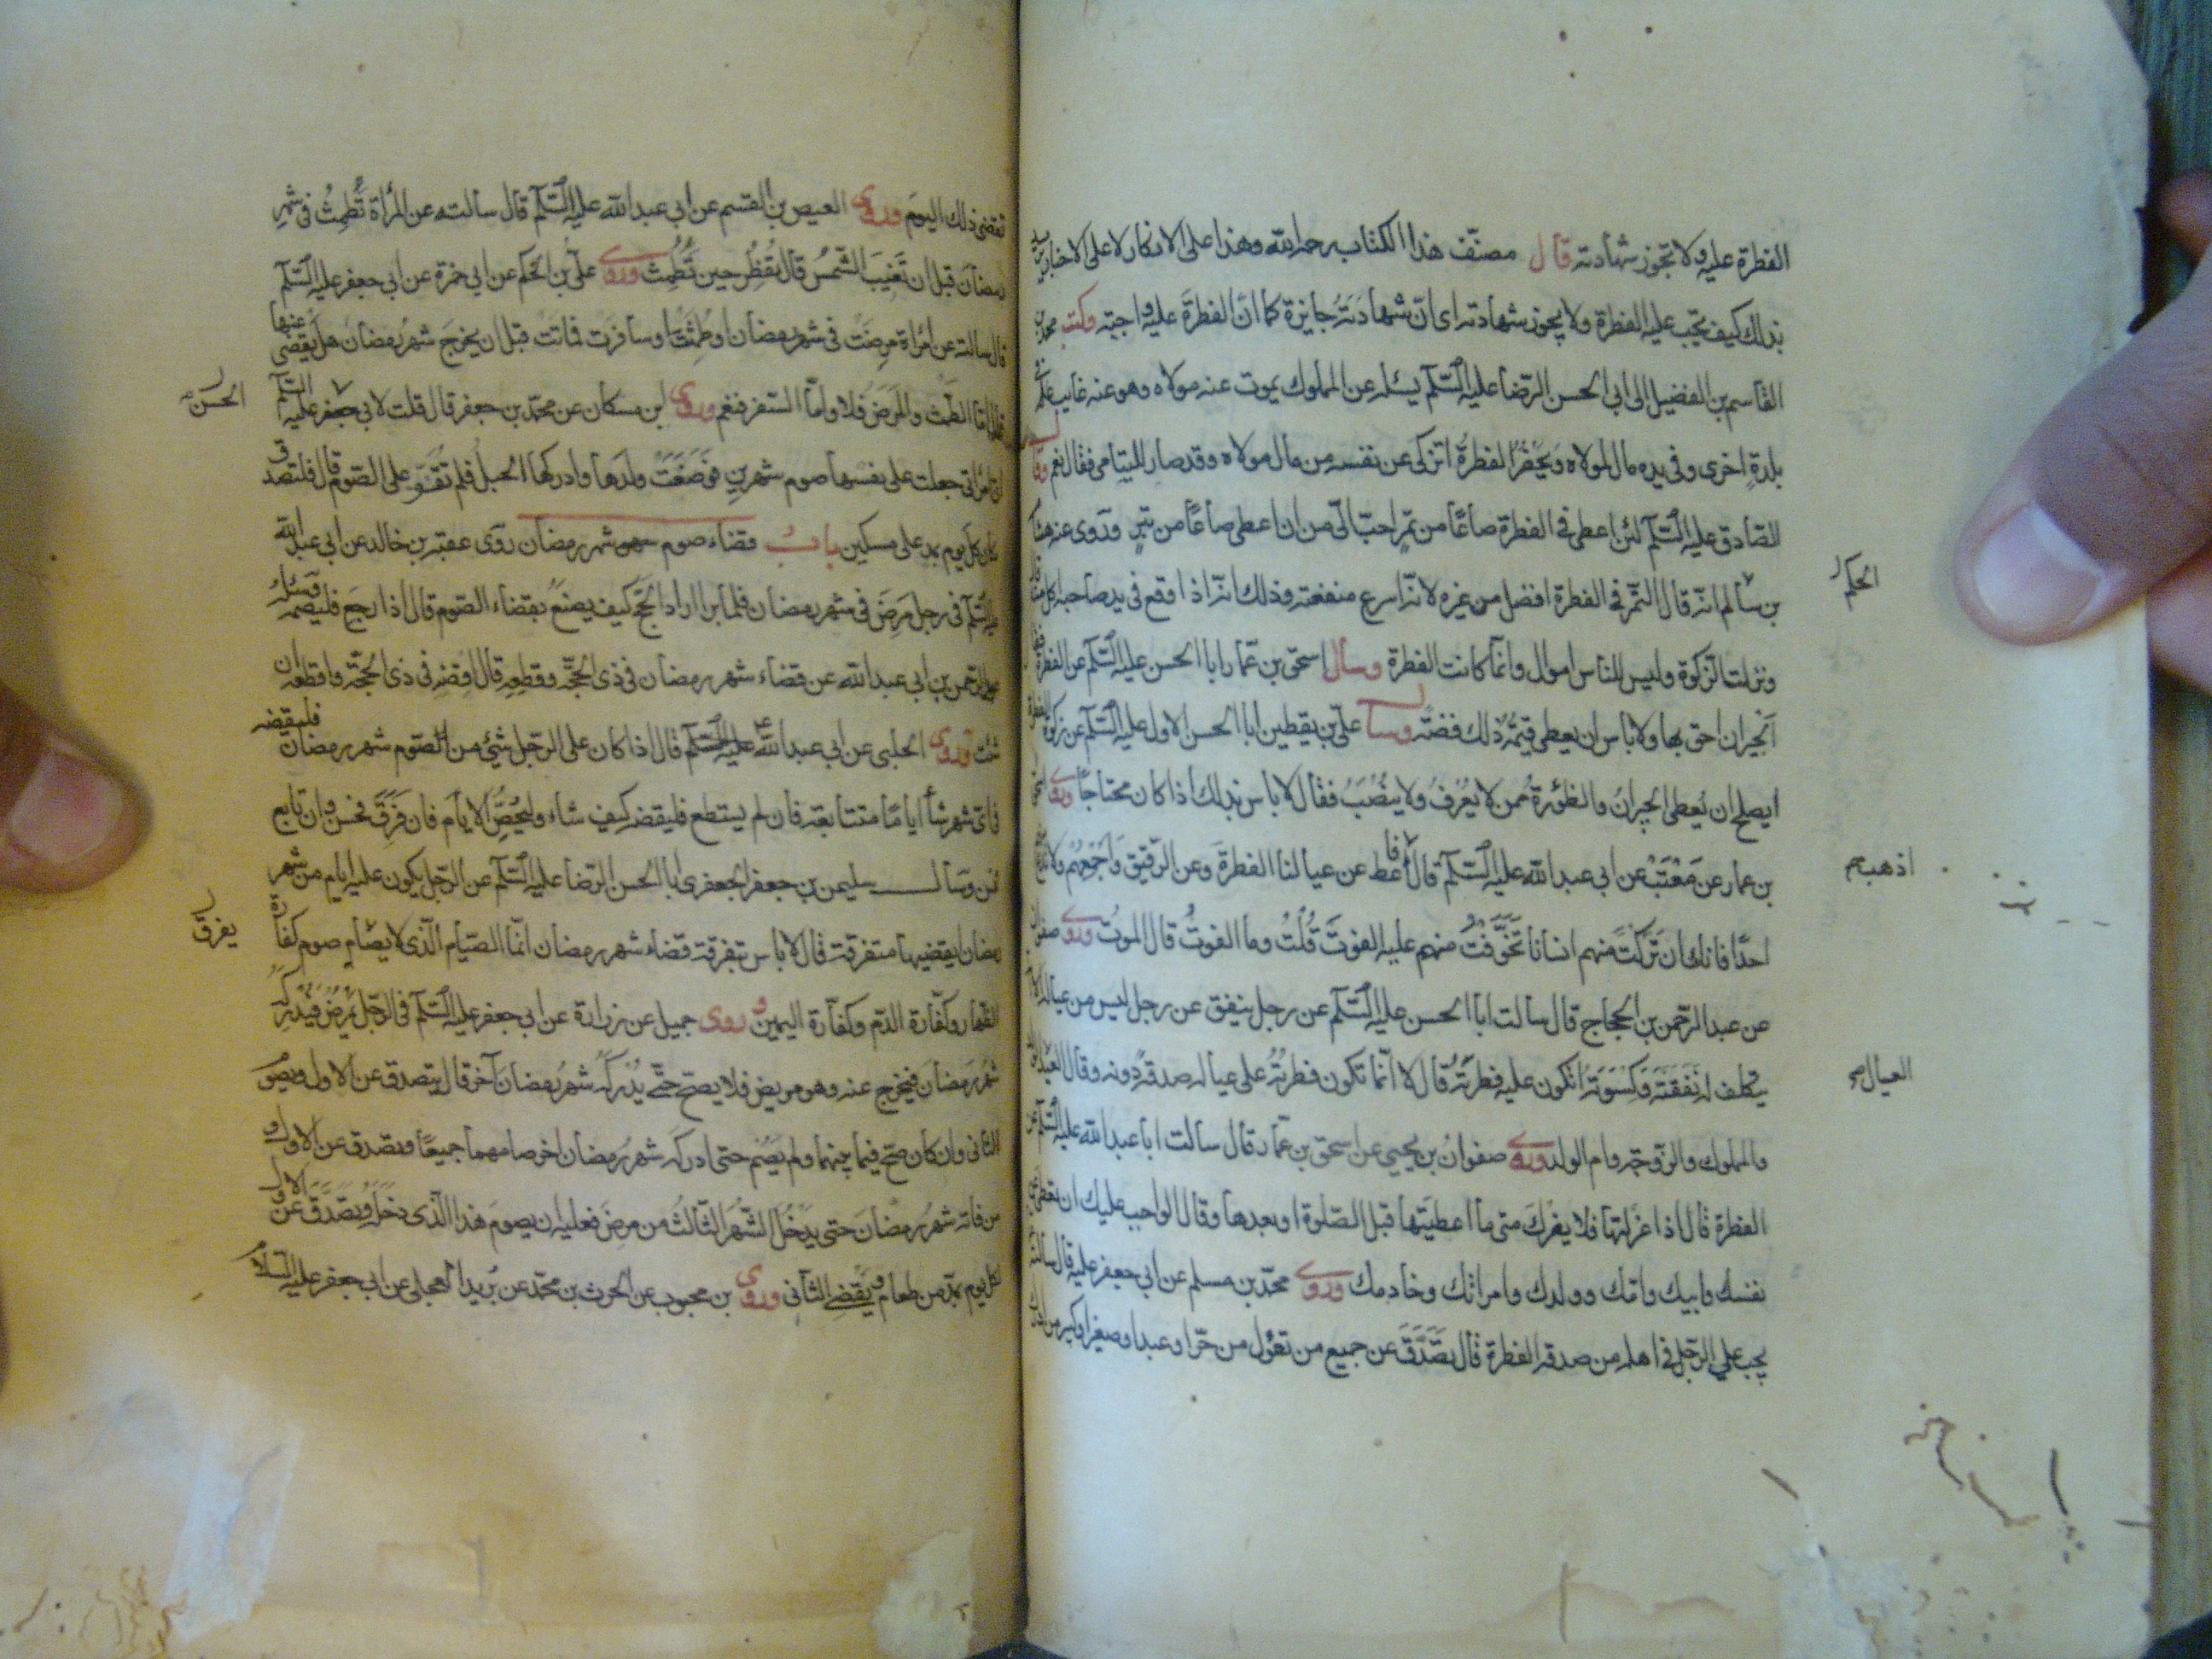 الفطرة عليه ولا تجوز شهادته قال مصنف هذا الكتاب رحمه الله وهذا على الانكار لا على الاخبار يريد
بذلك كيف تجب عليه الفطرة ولا يجوز شهادته اى ان شهادته جايزة كما ان الفطرة عليه واجبة وكتب محمد بن
القاسم بن الفضيل الى ابى الحسن الرضا عليه السلم يسئله عن المملوك يموت عنه مولاه وهو عنه غايب
بلدة اخرى وفى يده مال لمولاه ويحضر الفطرة ايزكى عن نفسه من مال مولاه وقد صار لليتامى فقال نعم وقال
الصادق عليه السلم لئن اعطى فى الفطرة صاعا من تمر احب الى من ان اعطى صاعا من تبر وروى عنه هشام
بن سالم انه قال التمر فى الفطرة افضل من غيره لانه اسرع منفعة وذلك انه اذا وقع فى يد صاحبه اكل منه
الحكم
ونزلت الزكوة وليس للناس اموال وانما كانت الفطرة وسال اسحق بن عمار ابا الحسن عليه السلم عن الفطرة
الجيران احق بها ولا باس ان يعطى قيمة ذلك فضة وسأل على بن يقطين ابا الحسن الاول عليه السلم عن زكوة الفطرة
ايصلح ان يعطى الجيران والظؤرة ممن لا يعرف ولا ينصب فقال لا باس بذلك اذا كان محتاجا وروى
بن عمار عن معتب عن ابى عبد الله عليه السلم قال فاعط عن عيالنا الفطرة وعن الرقيق واجمعهم ولا
اذهب
احدا فانك ان تركت منهم انسانا تخوفت منهم عليه الفوت قلت وما الفوت قال الموت وروى صفوان
عن عبد الرحمن بن الحجاج قال سالت ابا الحسن عليه السلم عن رجل ينفق عن رجل ليس من عياله الا
يتكلف له نفقته وكسوته اتكون عليه فطرته قال لا انما تكون فطرته على عياله صدقة دونه وقال العيال
العيال صح
والمملوك والزوجة وام الولد وروى صفوان بن يحيى عن اسحق بن عمار قال سالت ابا عبد الله عليه السلم عن
الفطرة قال اذا عزلتها فلا يضرك متى ما اعطيتها قبل الصلوة او بعدها وقال الواجب عليك ان تعطى عن
نفسك وابيك وامك وولدك وامراتك وخادمك وروى محمد بن مسلم عن ابى جعفر عليه قال سالته
يجب على الرجل فى اهله من صدقة الفطرة قال تصدق عن جميع من تعول من حر او عبد او صغير او كبير من
تقضى ذلك اليوم وروى العيص بن القسم عن ابى عبد الله عليه السلم قال سالته عن المرأة تطمث فى شهر
رمضان قبل ان تغيب الشمس قال تفطر حين تطمث وروى على بن الحكم عن ابى حمزة عن ابى جعفر عليه السلم
قال سالته عن امراة مرضت فى شهر رمضان او طمثت او سافرت فماتت قبل ان يخرج شهر رمضان هل يقضى عنها
قال اما الطمث والمرض فلا واما السفر فنعم وروى ابن مسكان عن محمد بن جعفر قال قلت لابى جعفر عليه السلم
الحسن
ان امراتى جعلت على نفسها صوم شهرين فوضعت ولدها وادركها الحبل فلم تقو على الصوم قال فلتصدق
مكان كل يوم بمد على مسكين باب قضاء صوم شهر رمضان روى عقبة بن خالد عن ابى عبد الله
عليه السلم فى رجل مرض فى شهر رمضان فلما برا اراد الحج كيف يصنع بقضاء الصوم قال اذا رجع فليصمه وسئله
عبد الرحمن بن ابى عبد الله عن قضاء شهر رمضان فى ذى الحجة وقطعه قال اقضه فى ذى الحجة واقطعه ان
شئت وروى الحلبى عن ابى عبد الله عليه السلم قال اذا كان على الرجل شئ من الصوم شهر رمضان فليقضه
فى اى شهر شاء اياما متتابعة فان لم يستطع فليقضه كيف شاء وليحص الايام فان فرق فحسن وان تابع
فحسن وسال سليمن بن جعفر الجعفرى ابا الحسن الرضا عليه السلم عن الرجل يكون عليه ايام من شهر
رمضان ايقضيها متفرقة قال لا باس بتفرقة قضاء شهر رمضان انما الصيام الذى لا يصام صوم كفارة
يفرق
الظهار وكفارة الدم وكفارة اليمين وروى جميل عن زرارة عن ابى جعفر عليه السلم فى الرجل يمرض فيدركه
شهر رمضان فيخرج عنه وهو مريض فلا يصح حتى يدركه شهر رمضان آخر قال يتصدق عن الاول ويصوم
الثانى وان كان صح فيما بينهما ولم يصم حتى ادركه شهر رمضان اخر صامهما جميعا وتصدق عن الاول و
من فاته شهر رمضان حتى يدخل الشهر الثالث من مرض فعليه ان يصوم هذا الذى دخله ويصدق عن الاول
لكل يوم بمد من طعام ويقضى الثانى وروى بن محبوب عن الحرث بن محمد عن بريد العجلى عن ابى جعفر عليه السلام